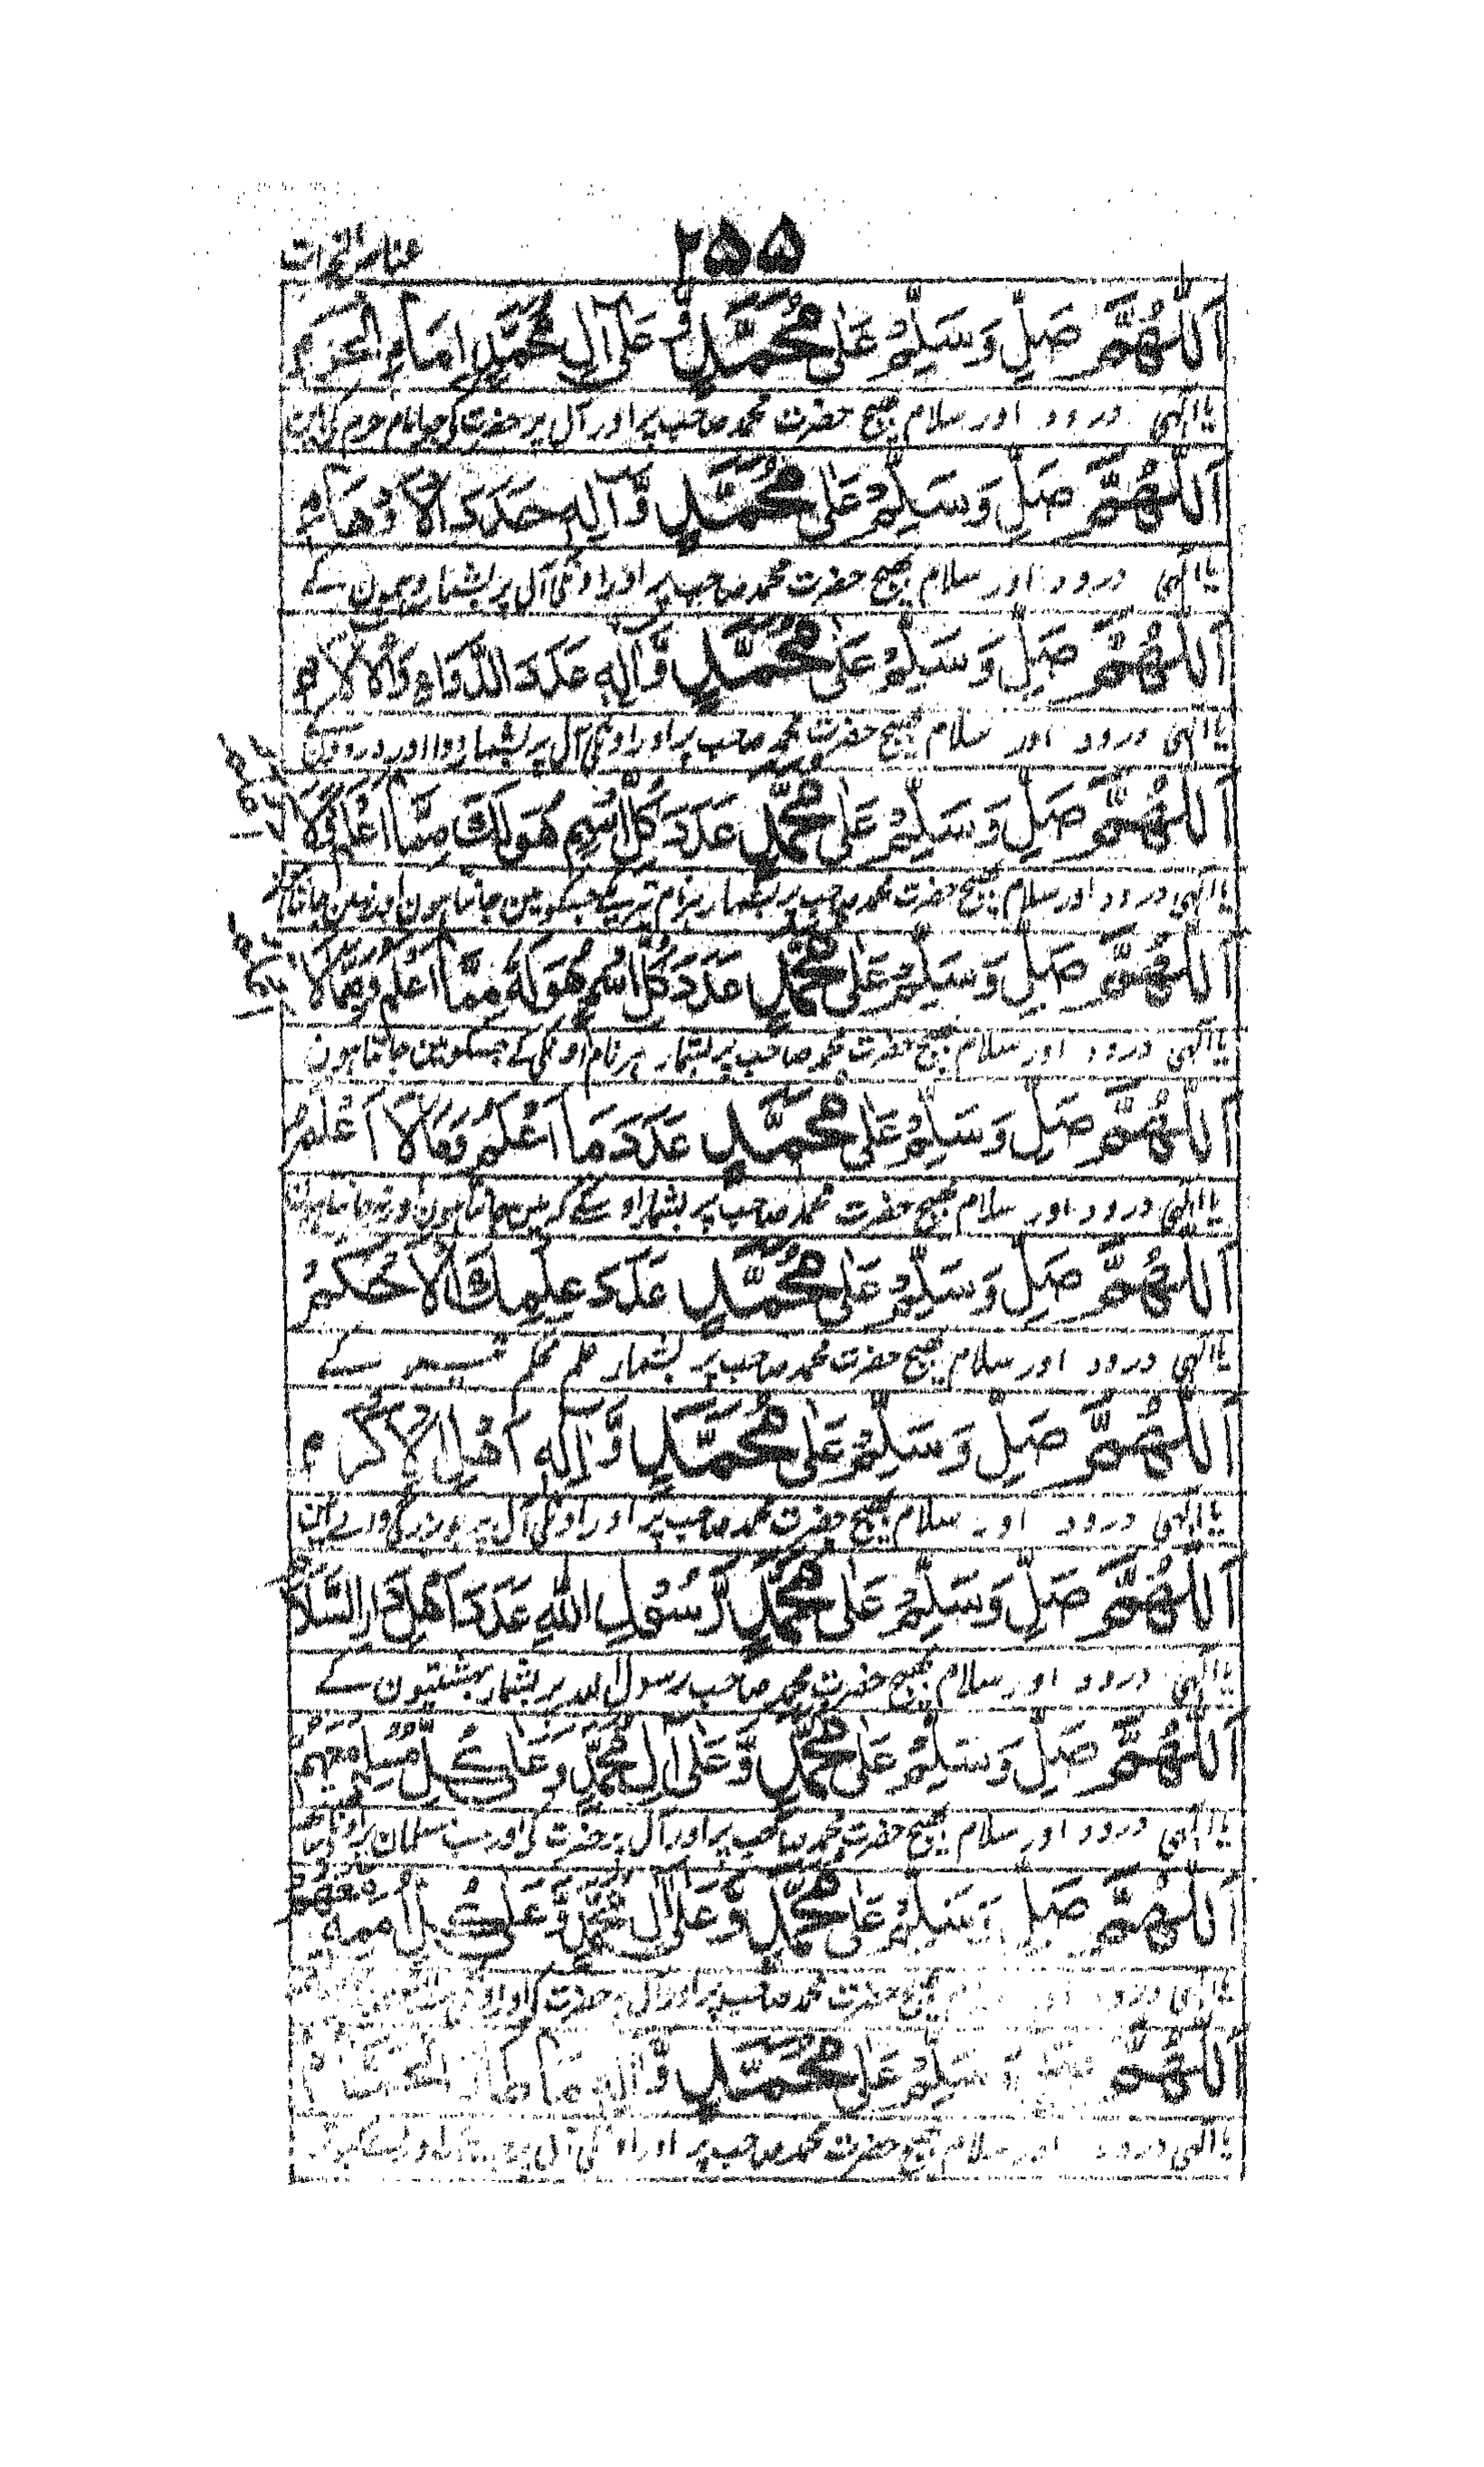 ۲۵۵
اَللّٰهُمَّ صَلِّ وَسَلِّمْ عَلٰى مُحَمَّدٍ وَّ عَلٰى اٰلِ مُحَمَّدٍ اِمَامِ الْحَرَمِ
يا الٰہی درود اور سلام بھیج حضرت محمد صاحب پر اور آل پر حضرت کی جو امام حرم کی ہین
اَللّٰهُمَّ صَلِّ وَسَلِّمْ عَلٰى مُحَمَّدٍ وَّ اٰلِهٖ عَدَدَ الْاَدْهَامِ
يا الٰہی درود اور سلام بھیج حضرت محمد صاحب پر اور اونکی آل پر بشمار کے
اَللّٰهُمَّ صَلِّ وَسَلِّمْ عَلٰى مُحَمَّدٍ وَّ اٰلِهٖ عَدَدَ الدَّوَاءِ وَالْاٰلَامِ
يا الٰہی درود اور سلام بھیج حضرت محمد صاحب پر اور اونکی آل پر بشمار دوا اور دردون کے
اَللّٰهُمَّ صَلِّ وَسَلِّمْ عَلٰى مُحَمَّدٍ عَدَدَ كُلِّ اسْمٍ هُوَ لَكَ مِمَّا اَعْلَمُ وَمَا لَا
يا الٰہی درود اور سلام بھیج حضرت محمد صاحب پر بشمار ہر نام تیرے کے جسکو مین جانتا ہون اور نہین جانتا
اَللّٰهُمَّ صَلِّ وَسَلِّمْ عَلٰى مُحَمَّدٍ عَدَدَ كُلِّ اسْمٍ هُوَ لَهٗ مِمَّا اَعْلَمُ وَمَا لَا
يا الٰہی درود اور سلام بھیج حضرت محمد صاحب پر بشمار ہر نام اونکی کے جسکو مین جانتا ہون
اَللّٰهُمَّ صَلِّ وَسَلِّمْ عَلٰى مُحَمَّدٍ عَدَدَ مَا اَعْلَمُ وَمَا لَا اَعْلَمُ
يا الٰہی درود اور سلام بھیج حضرت محمد صاحب پر بشمار اوسکے کہ مین جانتا ہون اور نہ جانتا ہون
اَللّٰهُمَّ صَلِّ وَسَلِّمْ عَلٰى مُحَمَّدٍ عَدَدَ عِلْمِكَ الْاَحْكَمِ
يا الٰہی درود اور سلام بھیج حضرت محمد صاحب پر بشمار علم محکم تیرے کے
اَللّٰهُمَّ صَلِّ وَسَلِّمْ عَلٰى مُحَمَّدٍ وَّ اٰلِهٖ اَهْلِ الْاِكْرَامِ
يا الٰہی درود اور سلام بھیج حضرت محمد صاحب پر اور اونکی آل پر جو بزرگی والے ہین
اَللّٰهُمَّ صَلِّ وَسَلِّمْ عَلٰى مُحَمَّدٍ رَّسُوْلِ اللّٰهِ عَدَدَ اَهْلِ دَارِ السَّلَامِ
يا الٰہی درود اور سلام بھیج حضرت محمد صاحب رسول اللہ پر بشمار بہشتیون کے
اَللّٰهُمَّ صَلِّ وَسَلِّمْ عَلٰى مُحَمَّدٍ وَّ عَلٰى اٰلِ مُحَمَّدٍ وَّ عَلٰى كُلِّ مُسْلِمٍ مَعَهُمْ
يا الٰہی درود اور سلام بھیج حضرت محمد صاحب پر اور آل پر حضرت کی اور سب مسلمان پر
اَللّٰهُمَّ صَلِّ وَسَلِّمْ عَلٰى مُحَمَّدٍ وَّ عَلٰى اٰلِ مُحَمَّدٍ وَّ عَلٰى كُلِّ مَعَهُمْ
يا الٰہی درود اور بھیج حضرت محمد صاحب پر اور آل پر حضرت کی اور
اَللّٰهُمَّ صَلِّ وَسَلِّمْ عَلٰى مُحَمَّدٍ وَّ اٰلِهٖ مَا طَارَ
يا الٰہی درود اور سلام بھیج حضرت محمد صاحب پر اور اونکی آل پر